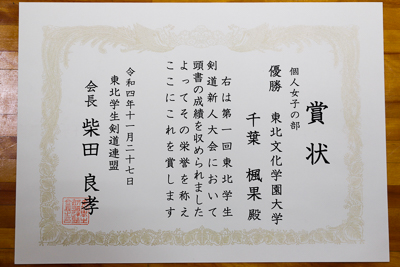 賞状
個人女子の部
優勝 東北文化学園大学
千葉 楓果 殿
右は第一回東北学生
剣道新人大会において
頭書の成績を収められました
よってその栄誉を称え
ここにこれを賞します
令和四年十一月二十七日
東北学生剣道連盟
会長 柴田 良孝